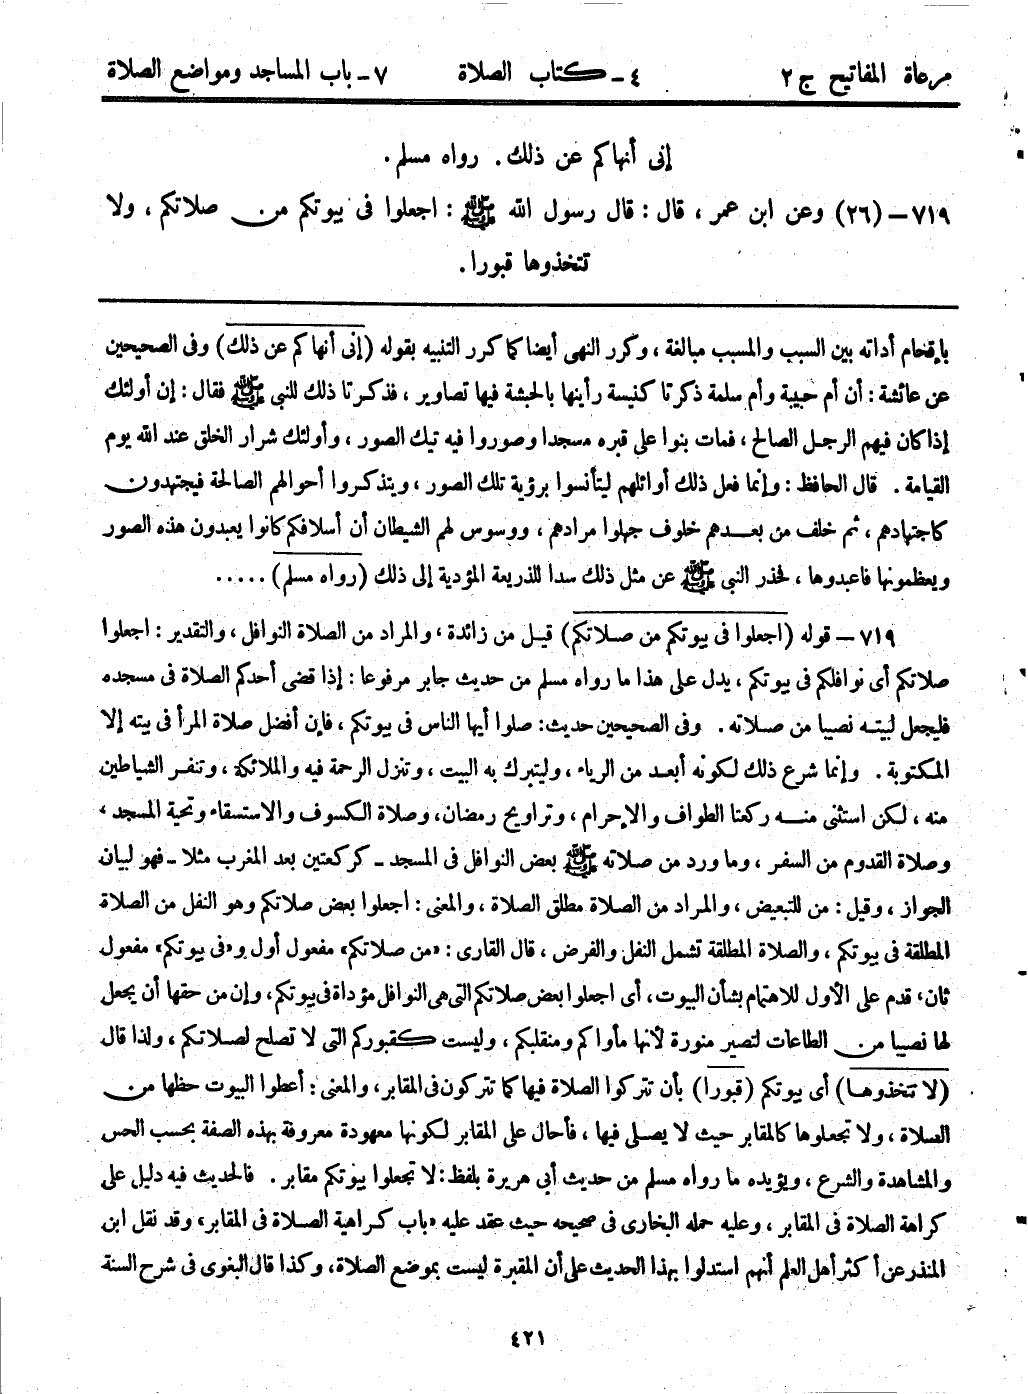 مرعاة المفاتيح ج ٢ ٤ - كتاب الصلاة ٧ - باب المساجد ومواضع الصلاة
إنى أنهاكم عن ذلك. رواه مسلم.
٧١٩ - (٢٦) وعن ابن عمر، قال: قال رسول الله ﷺ: اجعلوا فى بيوتكم من صلاتكم، ولا
تتخذوها قبورا.
بإقحام أداته بين السبب والمسبب مبالغة، وكرر النهى أيضا كما كرر التنبيه بقوله (إنى أنهاكم عن ذلك) وفى الصحيحين
عن عائشة: أن أم حبيبة وأم سلمة ذكرتا كنيسة رأينها بالحبشة فيها تصاوير، فذكرتا ذلك للنبى ﷺ فقال: إن أولئك
إذا كان فيهم الرجل الصالح، فمات بنوا على قبره مسجدا وصوروا فيه تيك الصور، وأولئك شرار الخلق عند الله يوم
القيامة. قال الحافظ: وإنما فعل ذلك أوائلهم ليتأنسوا برؤية تلك الصور، ويتذكروا أحوالهم الصالحة فيجتهدون
كاجتهادهم، ثم خلف من بعدهم خلوف جهلوا مرادهم، ووسوس لهم الشيطان أن أسلافكم كانوا يعبدون هذه الصور
ويعظمونها فاعبدوها، فحذر النبى ﷺ عن مثل ذلك سدا للذريعة المؤدية إلى ذلك (رواه مسلم) .....
٧١٩ - قوله (اجعلوا فى بيوتكم من صلاتكم) قيل من زائدة، والمراد من الصلاة النوافل، والتقدير: اجعلوا
صلاتكم أى نوافلكم فى بيوتكم، يدل على هذا ما رواه مسلم من حديث جابر مرفوعا: إذا قضى أحدكم الصلاة فى مسجده
فليجعل لبيته نصيبا من صلاته. وفى الصحيحين حديث: صلوا أيها الناس فى بيوتكم، فإن أفضل صلاة المرأ فى بيته إلا
المكتوبة. وإنما شرع ذلك لكونه أبعد من الرياء، وليتبرك به البيت، وتنزل الرحمة فيه والملائكة، وتنفر الشياطين
منه، لكن استثنى منه ركعتا الطواف والإحرام، وتراويح رمضان، وصلاة الكسوف والاستسقاء وتحية المسجد،
وصلاة القدوم من السفر، وما ورد من صلاته ﷺ بعض النوافل فى المسجد - كركعتين بعد المغرب مثلا - فهو لبيان
الجواز، وقيل: من للتبعيض، والمراد من الصلاة مطلق الصلاة، والمعنى: اجعلوا بعض صلاتكم وهو النفل من الصلاة
المطلقة فى بيوتكم، والصلاة المطلقة تشمل النفل والفرض، قال القارى: «من صلاتكم» مفعول أول و«فى بيوتكم» مفعول
ثان، قدم على الأول للاهتمام بشأن البيوت، أى اجعلوا بعض صلاتكم التى هى النوافل مؤداة فى بيوتكم، وإن من حقها أن يجعل
لها نصيبا من الطاعات لتصير منورة لأنها مأواكم ومنقلبكم، وليست كقبوركم التى لا تصلح لصلاتكم، ولذا قال
(لا تتخذوها) أى بيوتكم (قبورا) بأن تتركوا الصلاة فيها كما تتركون فى المقابر، والمعنى: أعطوا البيوت حظها من
الصلاة، ولا تجعلوها كالمقابر حيث لا يصلى فيها، فأحال على المقابر لكونها معهودة معروفة بهذه الصفة بحسب الحس
والمشاهدة والشرع، ويؤيده ما رواه مسلم من حديث أبى هريرة بلفظ: لا تجعلوا بيوتكم مقابر. فالحديث فيه دليل على
كراهة الصلاة فى المقابر، وعليه حمله البخارى فى صحيحه حيث عقد عليه «باب كراهية الصلاة فى المقابر، وقد نقل ابن
المنذر عن أكثر أهل العلم أنهم استدلوا بهذا الحديث على أن المقبرة ليست بموضع الصلاة، وكذا قال البغوى فى شرح السنة
٤٢١